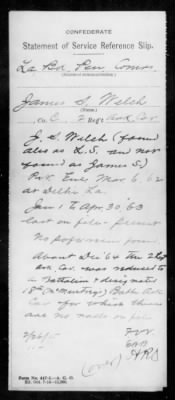 CONFEDERATE
Statement of Service Reference Slip.
La Bd Pen Comrs
James S. Welch
(Name.)
Co. C, 2 Reg't Ark Cav
J. S. Welch (found
also as L.S. and not
found as James S.)
Pvt. Enl. Mar. 6, 62
at Delhi La.
Jan 1 to Apr. 30, 63
last on file - Present
No pow record found
About Dec 64 the 2d
Ark Cav. was reduced to
a Battalion & designated
Battn Ark
Cav for which there
are no rolls on file
(over)
Form No. 447-6.—A. G. O.
Ed. Oct. 7-14—15,000.